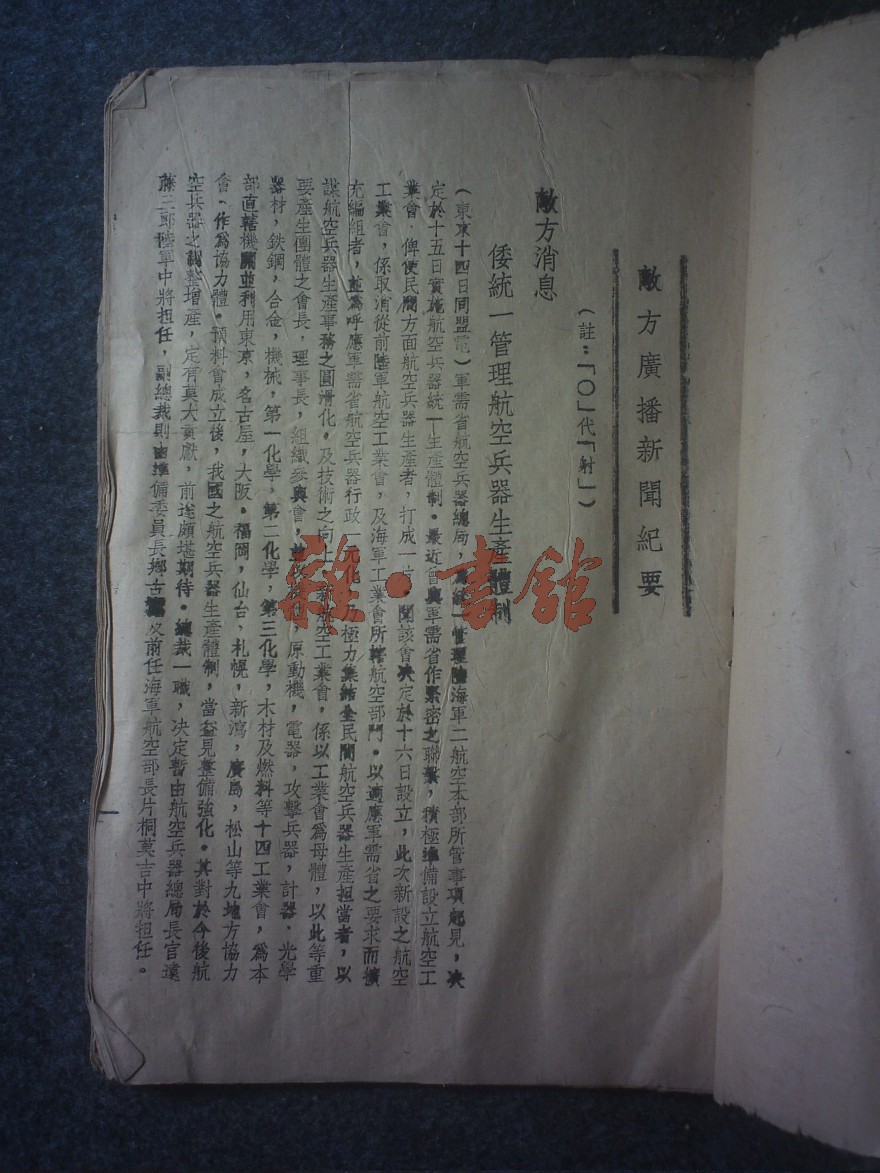 敵方廣播新聞紀要
(註：「○」代「射」)
敵方消息
倭統一管理航空兵器生產體制
(東京十四日同盟電)軍需省航空兵器總局，爲統一管理陸海軍二航空本部所管事項起見，决
定於十五日實施航空兵器統一生產體制。最近會與軍需省作緊密之聯繫，積極準備設立航空工
業會，俾使民間方面航空兵器生產者，打成一片，聞該會决定於十六日設立，此次新設之航空
工業會，係取消從前陸軍航空工業會，及海軍工業會所轄航空部門。以適應軍需省之要求而擴
充編組者，並爲呼應軍需省航空兵器行政一元化，乃極力集結全民間航空兵器生產担當者，以
謀航空兵器生產事務之圓滑化，及技術之向上，新航空工業會，係以工業會爲母體，以此等重
要產生團體之會長，理事長，組織參與會，並以機體，原動機，電器，攻擊兵器，計器，光學
器材，鉄鋼，合金，機械，第一化學，第二化學，第三化學，木材及燃料等十四工業會，爲本
部直轄機關並利用東京，名古屋，大阪。福岡，仙台，札幌，新瀉，廣島，松山等九地方協力
會，作爲協力體。預料會成立後，我國之航空兵器生產體制，當益見整備強化。其對於今後航
空兵器之調整增產，定有莫大貢獻，前途頗堪期待。總裁一職，决定暫由航空兵器總局長官遠
藤三郎陸軍中將担任，副總裁則由準備委員長鄉古及前任海軍航空部長片桐莫吉中將担任。
雜·書館